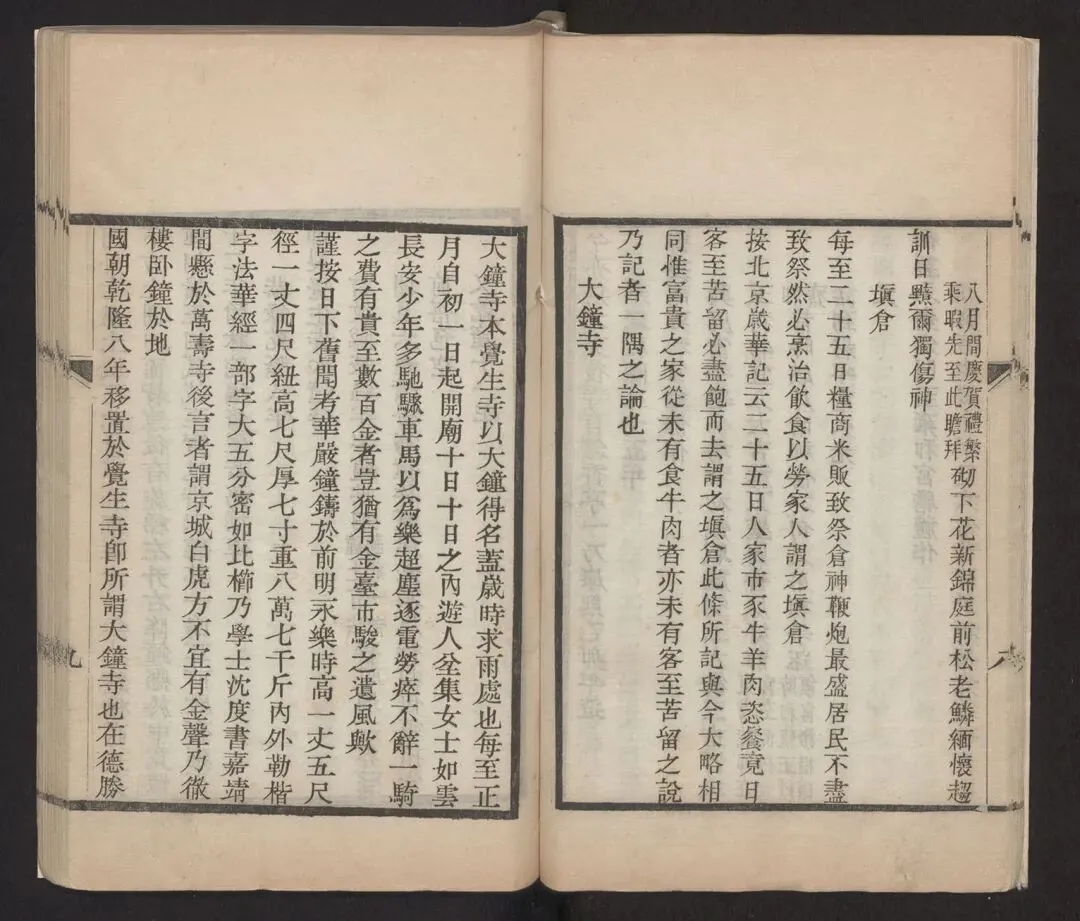 八月間慶賀禮繁
乘暇先至此瞻拜
砌下花新錦庭前松老鱗緬懷趨
訓日黰爾獨傷神
塡倉
每至二十五日糧商米販致祭倉神鞭炮最盛居民不盡
致祭然必烹治飲食以勞家人謂之塡倉
按北京歲華記云二十五日人家市豕牛羊肉恣餐竟日
客至苦留必盡飽而去謂之塡倉此條所記與今大略相
同惟富貴之家從未有食牛肉者亦未有客至苦留之說
乃記者一隅之論也
大鐘寺
八
大鐘寺本覺生寺以大鐘得名蓋歲時求雨處也每至正
月自初一日起開廟十日十日之內遊人坌集女士如雲
長安少年多馳驟車馬以爲樂超塵逐電勞瘁不辭一騎
之費有貴至數百金者豈猶有金臺市駿之遺風歟
謹按日下舊聞考華嚴鐘鑄於前明永樂時高一丈五尺
徑一丈四尺紐高七尺厚七寸重八萬七千斤內外勒楷
字法華經一部字大五分密如比櫛乃學士沈度書嘉靖
間懸於萬壽寺後言者謂京城白虎方不宜有金聲乃徹
樓卧鐘於地
國朝乾隆八年移置於覺生寺卽所謂大鐘寺也在德勝
九